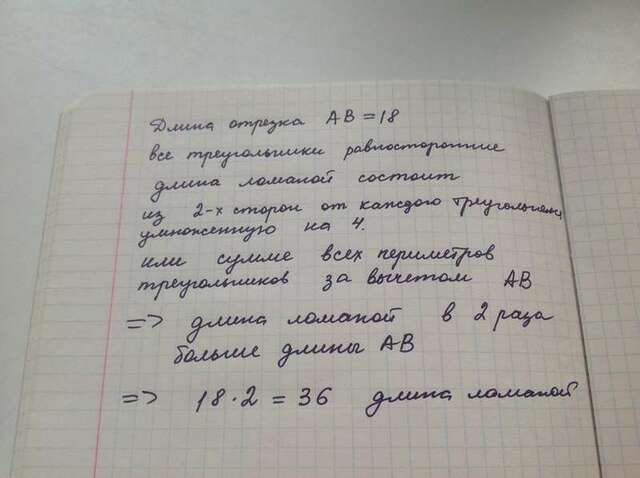 Длина отрезка АВ = 18
все треугольники равносторонние
длина ломаной состоит
из 2-х сторон от каждого треугольника
умноженную на 4.
или сумме всех периметров
треугольников за вычетом АВ
=> длина ломаной в 2 раза
больше длины АВ
=> 18 · 2 = 36 длина ломаной